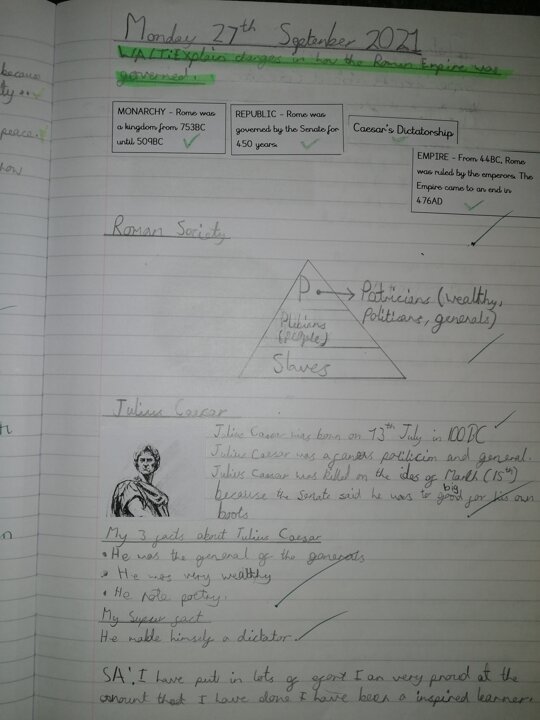 because
Monday 27th September 2021
WALT: Explain changes in how the Roman Empire was
governed.
peace.
MONARCHY - Rome was
a kingdom from 753BC
until 509BC
REPUBLIC - Rome was
governed by the Senate for
450 years.
Caesar's Dictatorship
EMPIRE - From 44BC, Rome
was ruled by the emperors. The
Empire came to an end in
476AD
Roman Society
P → Patricians (wealthy,
Politians, generals)
Plibians
(people)
Slaves
Julius Caesar
Julius Caesar was born on 13th July in 100BC
Julius Caesar was a politicim and general.
Julius Caesar was killed on the ides of March (15th)
because the Senate said he was to big for his own
boots
My 3 facts about Julius Caesar
• He was the general of the generals
• He was very wealthy
• He rote poetry.
My Super fact
He made himself a dictator.
SA: I have put in lots of efort I am very proud at the
amount that I have done I have been a inspired learner.